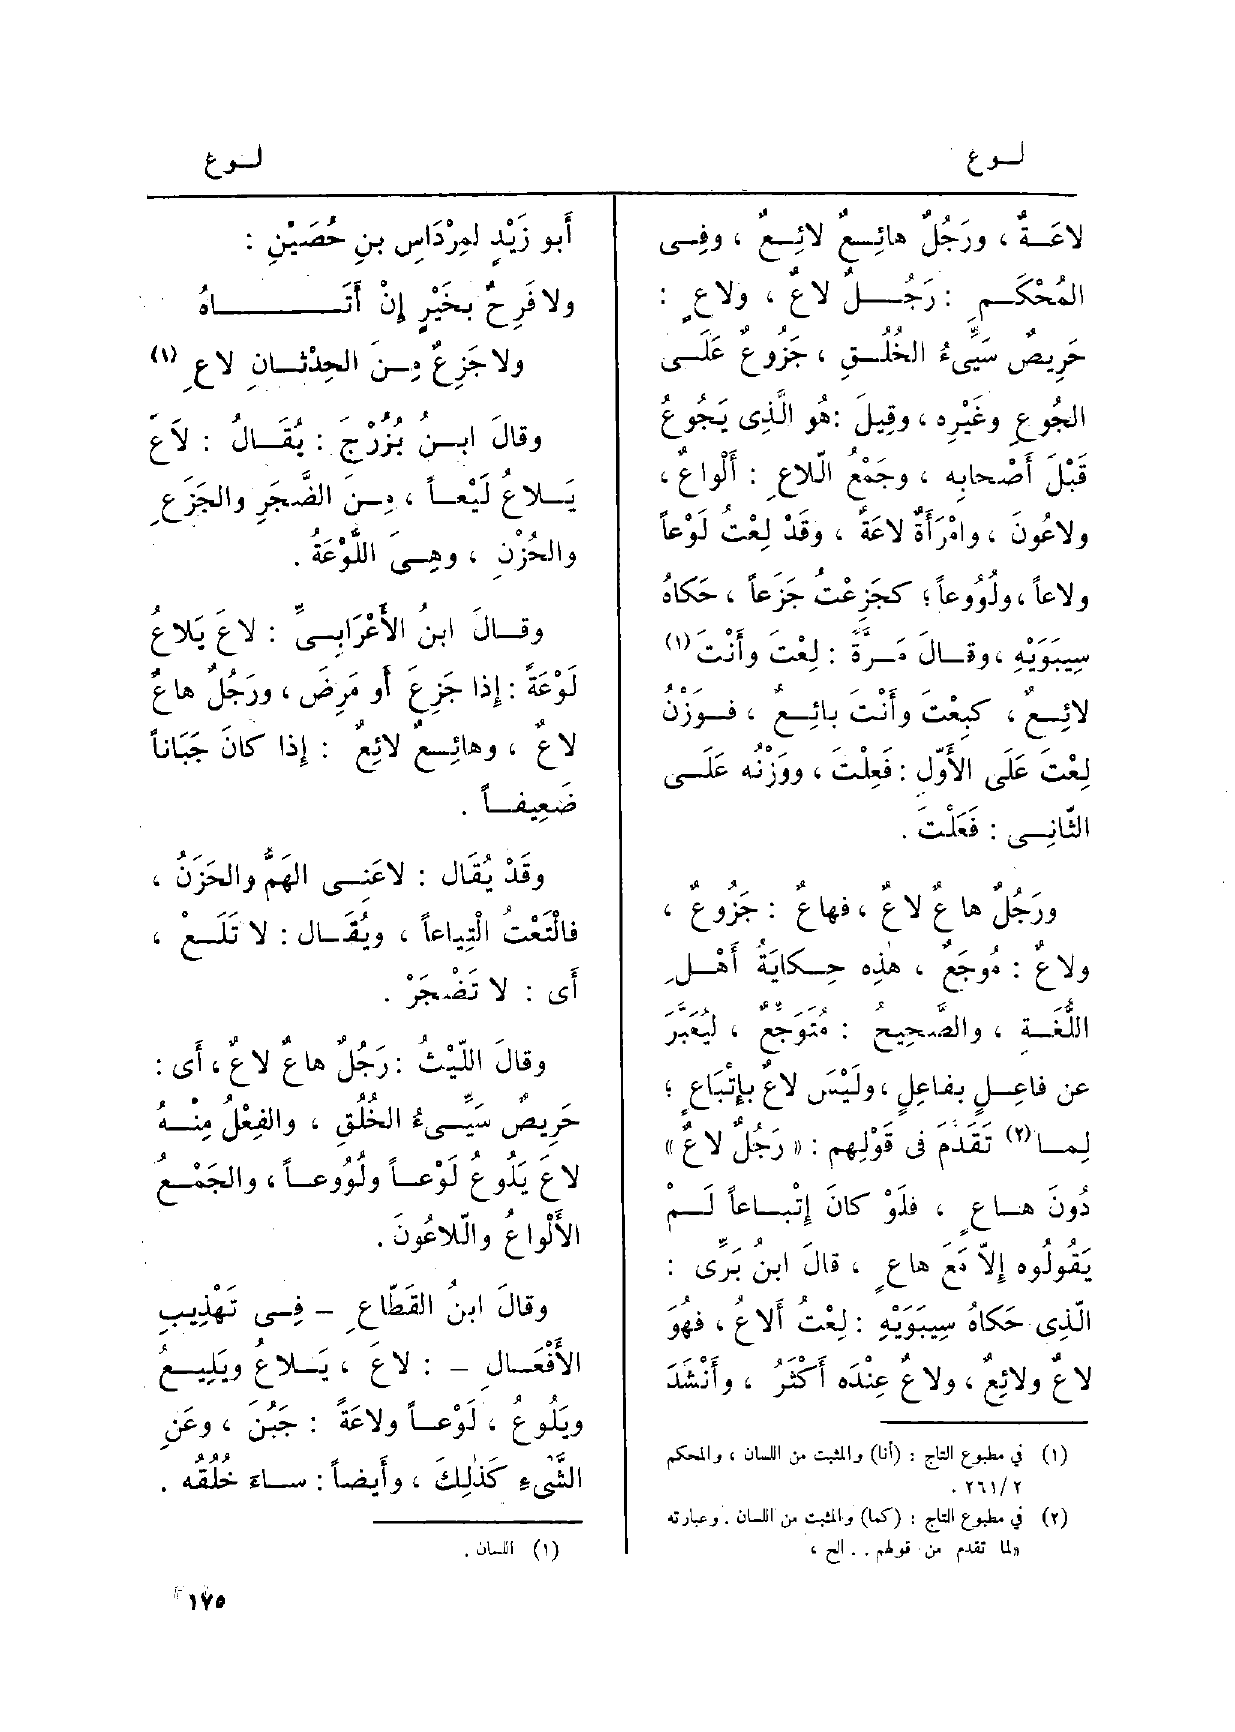 لـوع
لـوع
لاعَـةٌ ، ورَجُلٌ هائِـعٌ لائِـعٌ ، وفِـى
المُحْكَـمِ : رَجُـــلٌ لاعٌ ، ولاعٍ :
حَرِيصٌ سَيِّىءُ الخُلُـقِ ، جَزُوعٌ عَلَـى
الجُوعِ وغَيْرِه ، وقِيلَ : هُو الَّذِى يَجُوعُ
قَبْلَ أَصْحابِه ، وجَمْعُ الّلاعِ : أَلْواعٌ ،
ولاعُونَ ، وامْرَأَةٌ لاعَةٌ ، وقَدْ لِعْتُ لَوْعاً
ولاعاً ، ولُوُوعاً ؛ كجَزِعْتُ جَزَعاً ، حَكاهُ
سِيبَوَيْهِ ، وقـالَ مَـرَّةً : لِعْتَ وأَنْتَ(١)
لائِـعٌ ، كبِعْتَ وأَنْتَ بائِـعٌ ، فـوَزْنُ
لِعْتَ عَلَى الأَوّلِ : فَعِلْتَ ، ووَزْنُه عَلَـى
الثّانِـى : فَعَلْتَ .
ورَجُلٌ هاعٌ لاعٌ ، فهاعٌ : جَزُوعٌ ،
ولاعٌ : مُوجَعٌ ، هذِه حِـكايَةُ أَهْـلِ
اللُّغَـةِ ، والصَّحِيحُ : مُتَوَجِّعٌ ، ليُعَبَّرَ
عن فاعِـلٍ بفاعِلٍ ، ولَيْسَ لاعٌ بإِتْباعٍ ؛
لِمـا(٢) تَقَدَّمَ فى قَوْلِهِم : « رَجُلٌ لاعٌ »
دُونَ هـاعٍ ، فلَوْ كانَ إِتْبـاعاً لَـمْ
يَقُولُوه إِلاّ مَعَ هاعٍ ، قالَ ابنُ بَرِّى :
الَّذِى حَكاهُ سِيبَوَيْهِ : لِعْتُ أَلاعُ ، فهُوَ
لاعٌ ولائِعٌ ، ولاعٌ عِنْدَه أَكْثَرُ ، وأَنْشَدَ
(١) في مطبوع التاج : (أنا) والمثبت من اللسان ، والمحكم
٢/ ٢٦١ .
(٢) في مطبوع التاج : (كما) والمثبت من اللسان . وعبارته
«لما تقدم من قولهم . . الخ ،
أَبو زَيْدٍ لمِرْدَاسِ بنِ حُصَيْنٍ :
ولا فَرِحٌ بخَيْرٍ إِنْ أَتَـــــــاهُ
ولا جَزِعٌ مِـنَ الحِدْثـانِ لاعِ (١)
وقالَ ابـنُ بُزُرْجَ : يُقَـالُ : لاَعَ
يَـلاعُ لَيْعـاً ، مِـنَ الضَّجَرِ والجَزَعِ
والحُزْنِ ، وهِـىَ اللَّوْعَةُ .
وقـالَ ابنُ الأَعْرَابِـىّ : لاعَ يَلاعُ
لَوْعَةً : إِذا جَزِعَ أَو مَرِضَ ، ورَجُلٌ هاعٌ
لاعٌ ، وهائِـعٌ لائِعٌ : إِذا كانَ جَبَاناً
ضَعِيفـاً .
وقَدْ يُقَال : لاعَنِـى الهَمُّ والحَزَنُ ،
فالْتَعْتُ الْتِياعاً ، ويُقَـال : لا تَلَـعْ ،
أَى : لا تَضْجَرْ .
وقالَ اللَّيْثُ : رَجُلٌ هاعٌ لاعٌ ، أَى :
حَرِيصٌ سَيِّـىءُ الخُلُقِ ، والفِعْلُ مِنْـهُ
لاعَ يَلُوعُ لَوْعـاً ولُوُوعـاً ، والجَمْـعُ
الأَلْواعُ والّلاعُونَ .
وقالَ ابنُ القَطّاعِ – فِـى تَهْذِيبِ
الأَفْعَـالِ – : لاعَ ، يَـلاعُ ويَلِيـعُ
ويَلُوعُ ، لَوْعـاً ولاعَةً : جَبُنَ ، وعَنِ
الشَّىءِ كَذٰلِكَ ، وأَيضاً : سـاءَ خُلُقُه .
(١) اللسان .
١٧٥